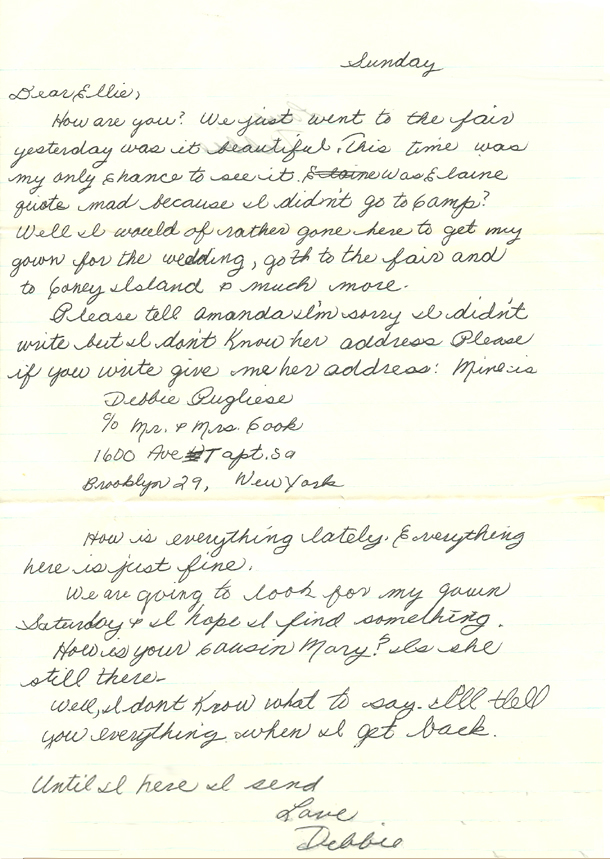 Sunday
Dear Ellie,
How are you? We just went to the fair
yesterday was it beautiful. This time was
my only chance to see it. Elaine Was Elaine
quote mad because I didn't go to Camp?
Well I would of rather gone here to get my
gown for the wedding, go to the fair and
to Coney Island & much more.
Please tell Amanda I'm sorry I didn't
write but I don't know her address Please
if you write give me her address: Mine is
Debbie Pugliese
c/o Mr. & Mrs. Cook
1600 Ave T apt. 5a
Brooklyn 29, New York
How is everything lately. Everything
here is just fine.
We are going to look for my gown
Saturday & I hope I find something.
How is your Cousin Mary? Is she
still there-
Well, I dont know what to say. I'll tell
you everything when I get back.
Until I here I send
Love
Debbie